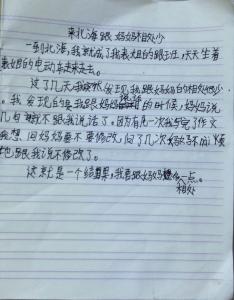 来北海跟妈妈相处少
一到北海,我就成了我表姐的跟班,天天坐着
表姐的电动车走来走去。
过了几天,我突然发现,我跟妈妈的相处好少
。我发现的是我跟妈妈说话的时候,妈妈说
几句就不跟我说话了。因为有一次我写完了作文
我想,问妈妈要不要修改,问了几次妈妈不耐烦
地跟我说不修改了。
这就是一个结果,我要跟妈妈相处一点。